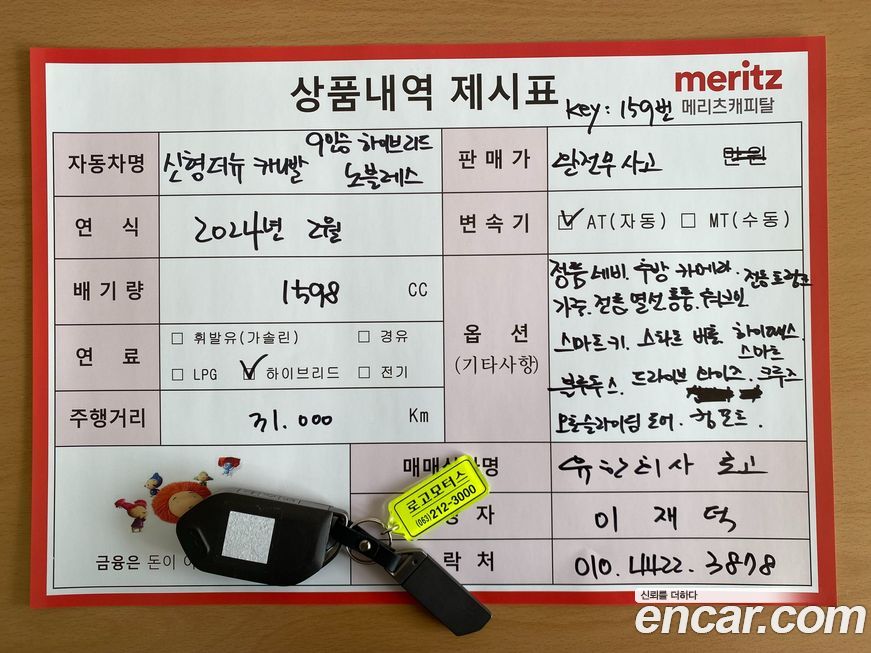 상품내역 제시표
meritz
메리츠캐피탈
key: 159번
자동차명
신형더뉴 카니발
9인승 하이브리드
노블레스
판매가
완전무사고
만원
연 식
2024년 2월
변속기
AT(자동) MT(수동)
배기량
1598 CC
옵 션
(기타사항)
정품네비. 후방 카메라. 전동트렁크
가죽. 전동열선통풍.
스마트키. 스타트 버튼. 하이패스.
블루투스. 드라이브 와이즈. 스마트 크루즈
오토슬라이딩 도어. 컴포트.
연 료
휘발유(가솔린) 경유
LPG 하이브리드 전기
주행거리
31.000 Km
매매 명
유한회사 로고
자
이 재덕
락 처
010.4422.3878
로고모터스
(063)212-3000
금융은 돈이
신뢰를 더하다
encar.com